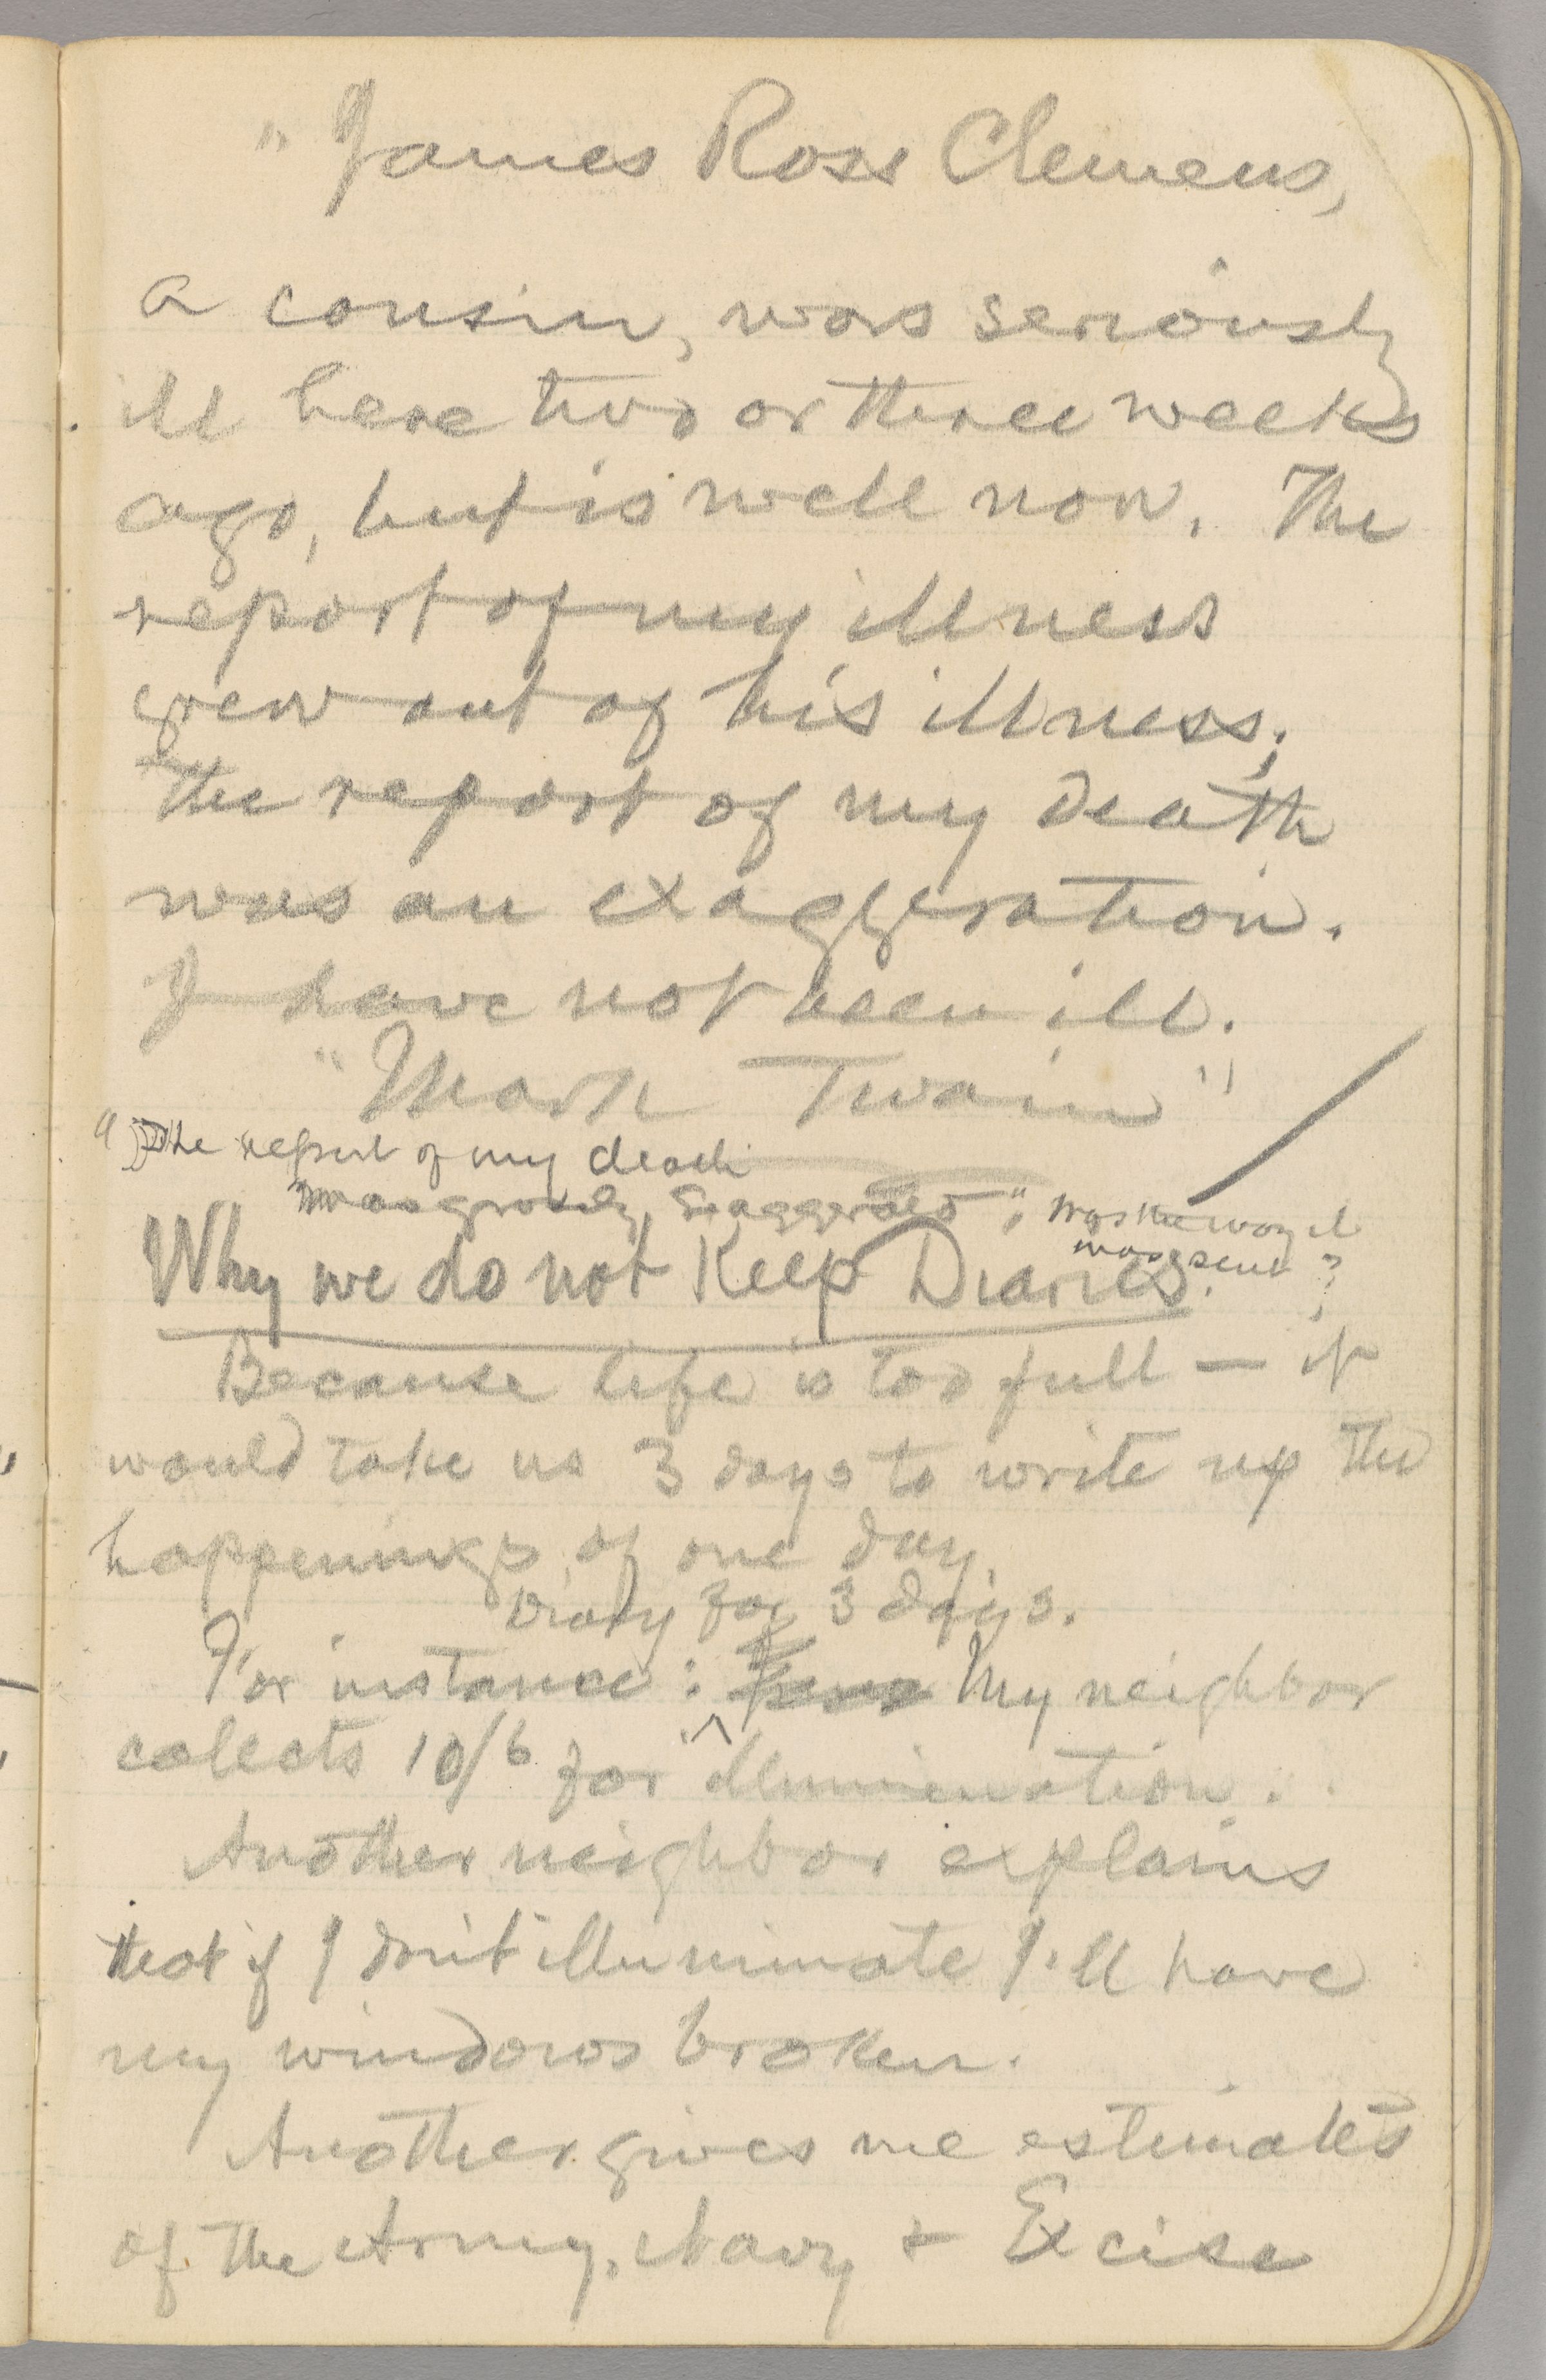 "James Ross Clemens,
a cousin, was seriously
ill here two or three weeks
ago, but is well now. The
report of my illness
grew out of his illness;
the report of my death
was an exaggeration.
I have not been ill.
"Mark Twain"
"The report of my death
was grossly exaggerated", was the way it
was sent?
Why we do not Keep Diaries.
Because life is too full — it
would take us 3 days to write up the
happenings of one day.
Diary for 3 days.
For instance: ^ My neighbor
collects 10/6 for illumination.
Another neighbor explains
that if I don't illuminate I'll have
my windows broken.
Another gives me estimates
of the Army, Navy & Excise